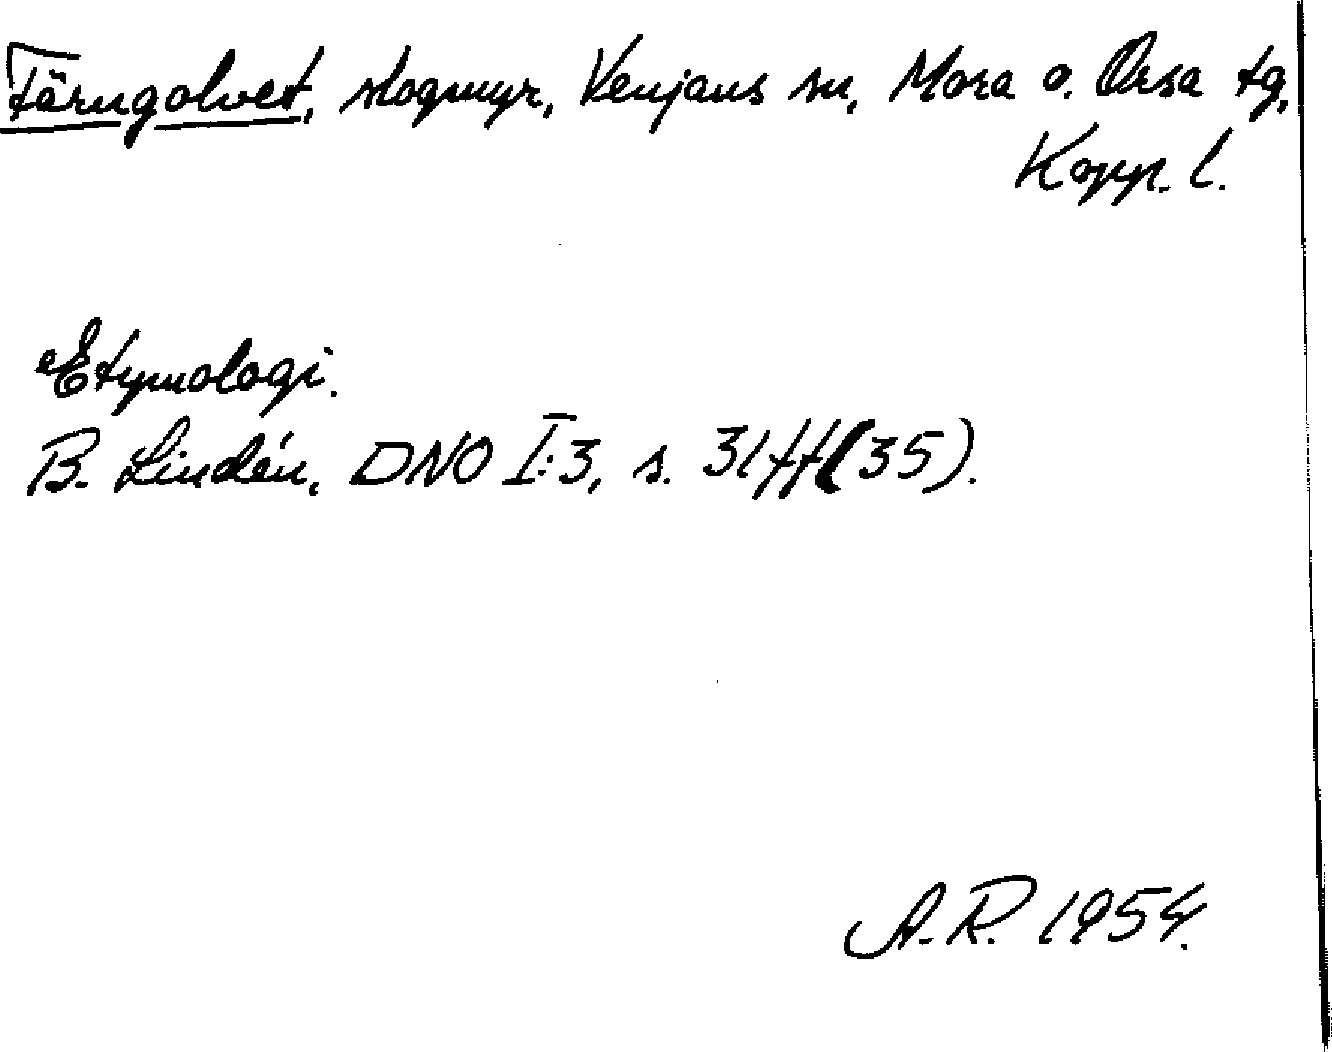 Färngolvet, slogmyr, Venjans sn, Mora o. Orsa tg,
Kopp. l.
Etymologi.
B. Lindén, DNO I:3, s. 31ff(35).
A.R. 1954.